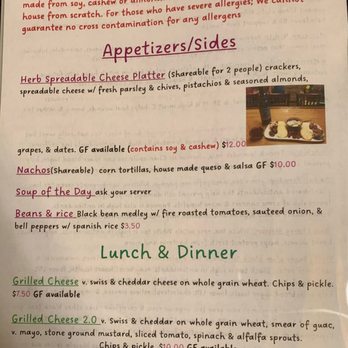 made from soy, cashew or almond
house from scratch. For those who have severe allergies; We cannot
guarantee no cross contamination for any allergens
Appetizers/Sides
Herb Spreadable Cheese Platter (Shareable for 2 people) crackers,
spreadable cheese w/ fresh parsley & chives, pistachios & seasoned almonds,
grapes, & dates. GF available (contains soy & cashew) $12.00
Nachos(Shareable) corn tortillas, house made queso & salsa GF $10.00
Soup of the Day ask your server
Beans & rice Black bean medley w/ fire roasted tomatoes, sauteed onion, &
bell peppers w/ spanish rice $3.50
Lunch & Dinner
Grilled Cheese v. swiss & cheddar cheese on whole grain wheat. Chips & pickle.
$7.50 GF available
Grilled Cheese 2.0 v. Swiss & cheddar on whole grain wheat, smear of guac,
v. mayo, stone ground mustard, sliced tomato, spinach & alfalfa sprouts.
Chips & pickle. $10.00 GF available